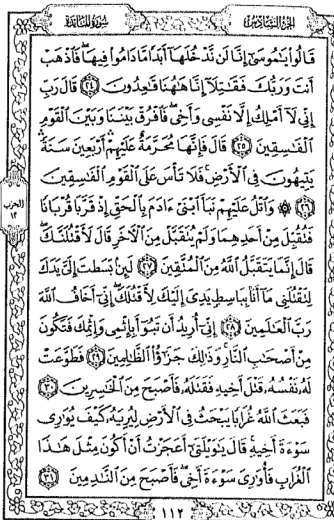 الجزء السادس
سورة المائدة
قَالُوا۟ يَـٰمُوسَىٰٓ إِنَّا لَن نَّدْخُلَهَآ أَبَدًا مَّا دَامُوا۟ فِيهَا ۖ فَٱذْهَبْ
أَنتَ وَرَبُّكَ فَقَـٰتِلَآ إِنَّا هَـٰهُنَا قَـٰعِدُونَ ٢٤ قَالَ رَبِّ
إِنِّى لَآ أَمْلِكُ إِلَّا نَفْسِى وَأَخِى ۖ فَٱفْرُقْ بَيْنَنَا وَبَيْنَ ٱلْقَوْمِ
ٱلْفَـٰسِقِينَ ٢٥ قَالَ فَإِنَّهَا مُحَرَّمَةٌ عَلَيْهِمْ ۛ أَرْبَعِينَ سَنَةً ۛ
يَتِيهُونَ فِى ٱلْأَرْضِ ۚ فَلَا تَأْسَ عَلَى ٱلْقَوْمِ ٱلْفَـٰسِقِينَ
٢٦ ۞ وَٱتْلُ عَلَيْهِمْ نَبَأَ ٱبْنَىْ ءَادَمَ بِٱلْحَقِّ إِذْ قَرَّبَا قُرْبَانًا
فَتُقُبِّلَ مِنْ أَحَدِهِمَا وَلَمْ يُتَقَبَّلْ مِنَ ٱلْـَٔاخَرِ قَالَ لَأَقْتُلَنَّكَ ۖ
قَالَ إِنَّمَا يَتَقَبَّلُ ٱللَّهُ مِنَ ٱلْمُتَّقِينَ ٢٧ لَئِنۢ بَسَطتَ إِلَىَّ يَدَكَ
لِتَقْتُلَنِى مَآ أَنَا۠ بِبَاسِطٍ يَدِىَ إِلَيْكَ لِأَقْتُلَكَ ۖ إِنِّىٓ أَخَافُ ٱللَّهَ
رَبَّ ٱلْعَـٰلَمِينَ ٢٨ إِنِّىٓ أُرِيدُ أَن تَبُوٓأَ بِإِثْمِى وَإِثْمِكَ فَتَكُونَ
مِنْ أَصْحَـٰبِ ٱلنَّارِ ۚ وَذَٰلِكَ جَزَٰٓؤُا۟ ٱلظَّـٰلِمِينَ ٢٩ فَطَوَّعَتْ
لَهُۥ نَفْسُهُۥ قَتْلَ أَخِيهِ فَقَتَلَهُۥ فَأَصْبَحَ مِنَ ٱلْخَـٰسِرِينَ ٣٠
فَبَعَثَ ٱللَّهُ غُرَابًا يَبْحَثُ فِى ٱلْأَرْضِ لِيُرِيَهُۥ كَيْفَ يُوَٰرِى
سَوْءَةَ أَخِيهِ ۚ قَالَ يَـٰوَيْلَتَىٰٓ أَعَجَزْتُ أَنْ أَكُونَ مِثْلَ هَـٰذَا
ٱلْغُرَابِ فَأُوَٰرِىَ سَوْءَةَ أَخِى ۖ فَأَصْبَحَ مِنَ ٱلنَّـٰدِمِينَ ٣١
الحزب
١٢
١١٢